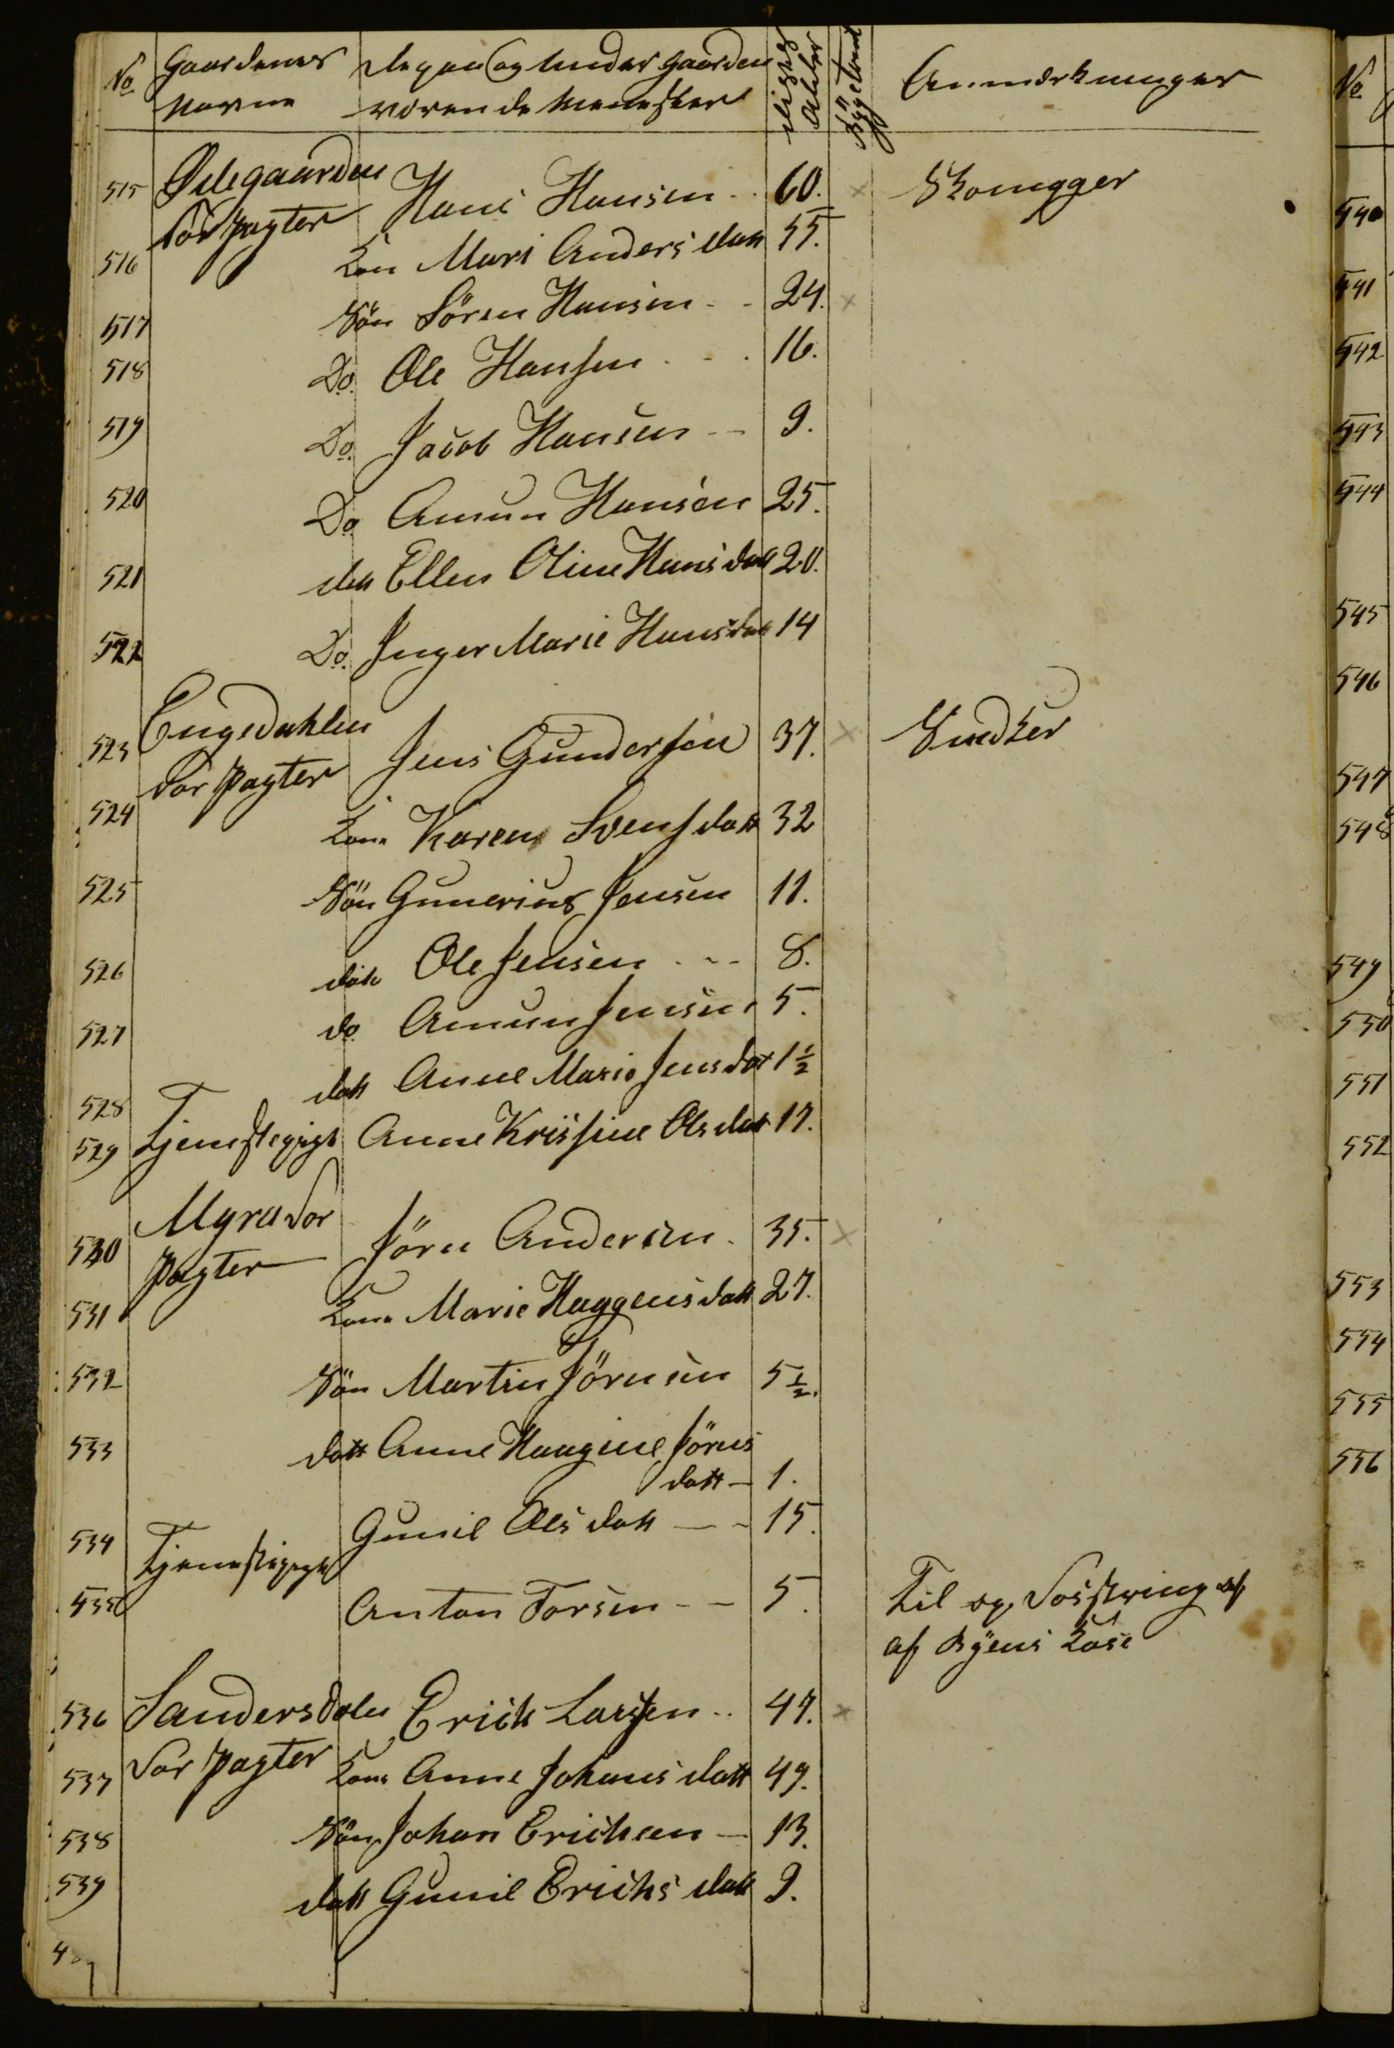 No Gaardenes Navne De paa og under Gaarden værende Mennesker Alder Anmærkninger No
515 Ødegaarden Forpagter Hans Hansen 60. × Skomager
516 Kon Mari Anders datt 55.
517 Sön Sören Hansen 24. ×
518 Do. Ole Hansen 16.
519 Do. Jacob Hansen 9.
520 Do. Amun Hansen 25.
521 datt Ellen Oline Hansdatt 20.
522 Do. Inger Marie Hansdatt 14
523 Engsdahlen Forpagter Jens Gundersen 37. × Snedker
524 Kone Karen Svensdatt 32
525 Sön Gunerius Jensen 11.
526 dito Ole Jensen 8.
527 do Amun Jensen 5.
528 datt Anne Marie Jensdat 1½
529 Tjenestepige Anne Kristine Olsdat 17.
530 Myra Forpagter Jörn Andersen 35. ×
531 Kone Marie Haagensdatt 27.
532 Sön Martin Jörnsen 5½.
533 datt Anne Haagine Jörns
datt 1.
534 Tjenestepige Gunil Olsdatt 15.
535 Anton Torsen 5. Til op Fostring af
af Byens Kase
536 Sandersdalen Forpagter Erick Larssen 47. ×
537 Kone Anne Johansdatt 49.
538 Sön Johan Ericksen 13.
539 datt Gunil Erichs datt 9.
540
541
542
543
544
545
546
547
548
549
550
551
552
553
554
555
556